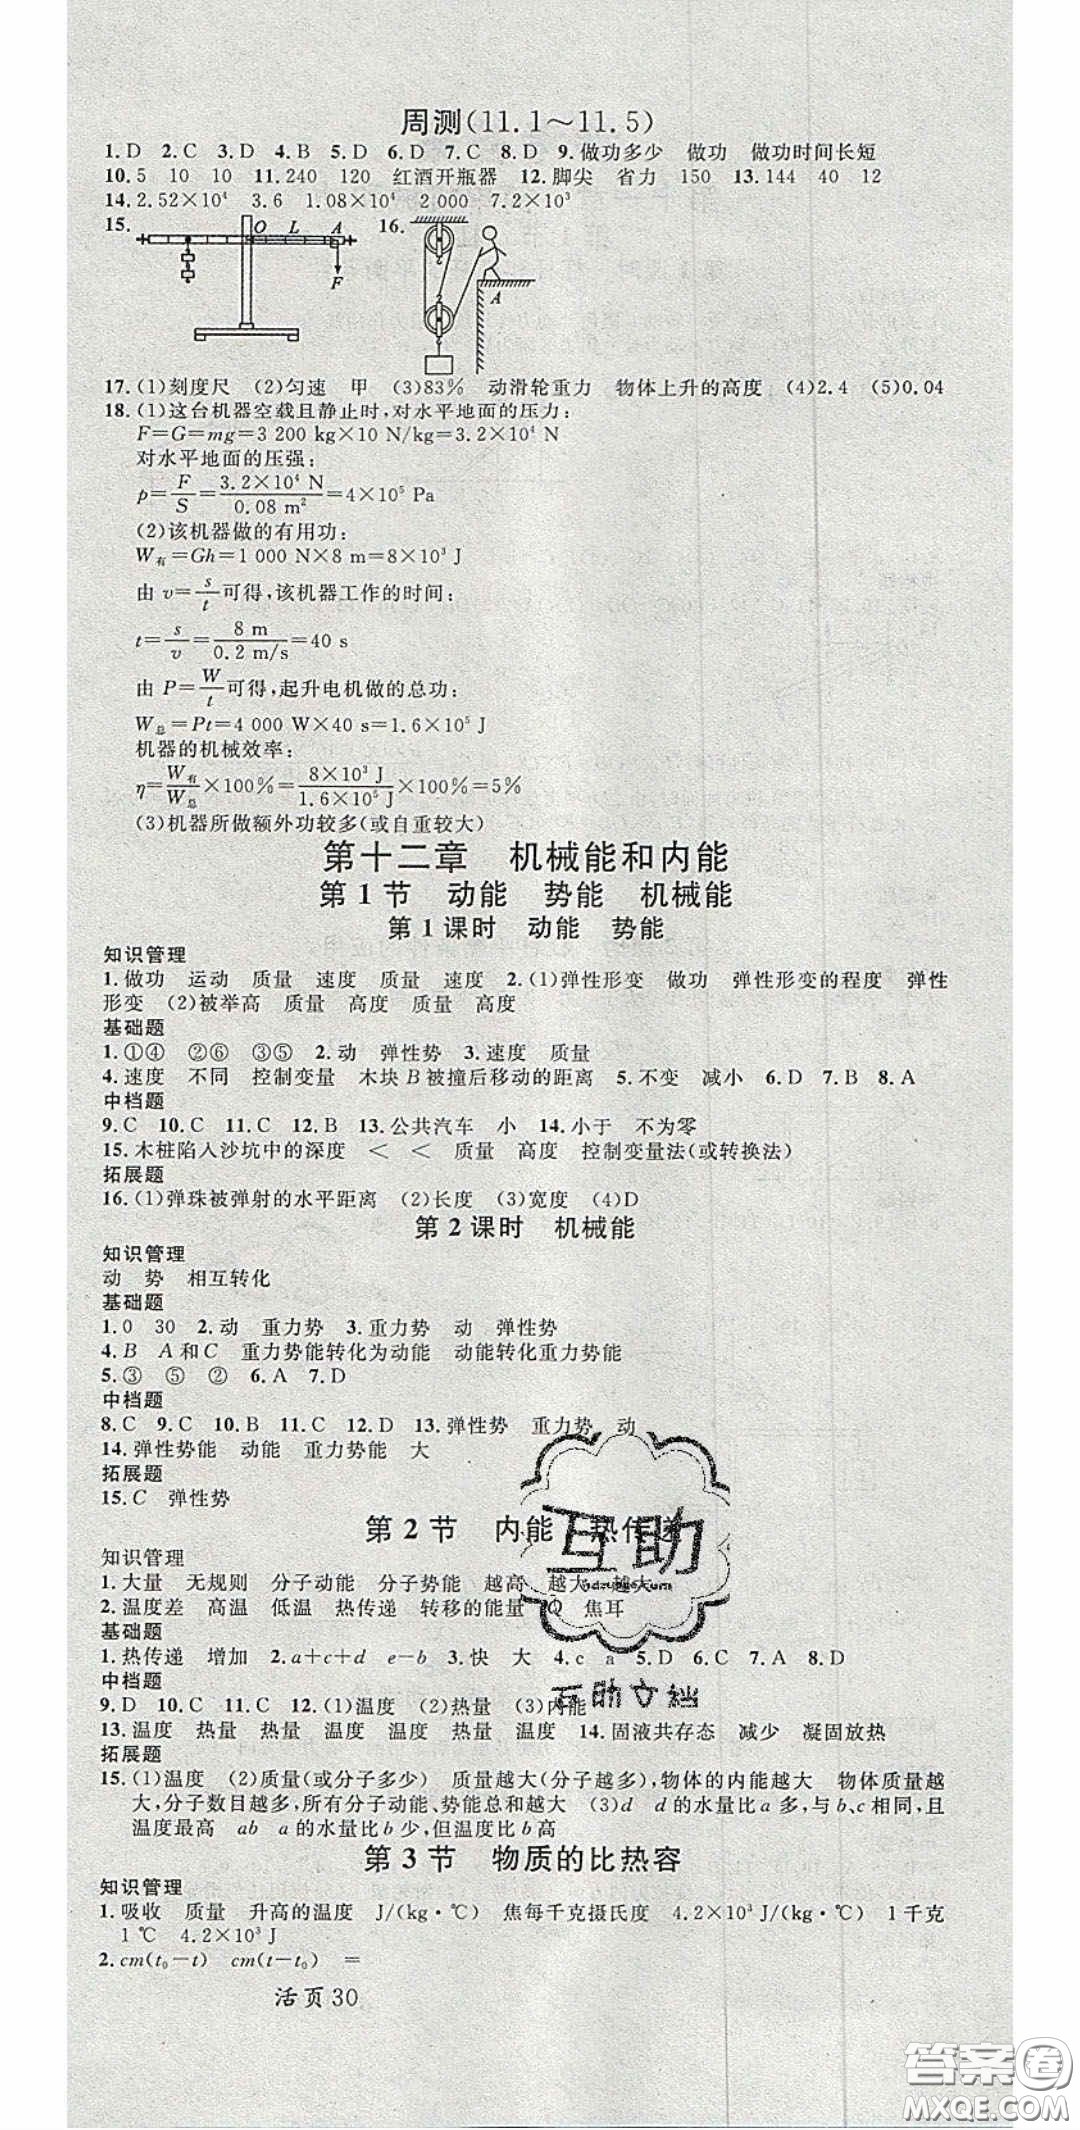 周测(11.1～11.5)
1.D 2.C 3.D 4.B 5.D 6.D 7.C 8.D 9.做功多少 做功 做功时间长短
10.5 10 10 11.240 120 红酒开瓶器 12.脚尖 省力 150 13.144 40 12
14.2.52×10⁴ 3.6 1.08×10⁴ 2 000 7.2×10³
15. O L A F 16. A
17.(1)刻度尺 (2)匀速 甲 (3)83% 动滑轮重力 物体上升的高度 (4)2.4 (5)0.04
18.(1)这台机器空载且静止时,对水平地面的压力:
F=G=mg=3 200 kg×10 N/kg=3.2×10⁴ N
对水平地面的压强:
p=F/S=3.2×10⁴ N/0.08 m²=4×10⁵ Pa
(2)该机器做的有用功:
W有=Gh=1 000 N×8 m=8×10³ J
由 v=s/t可得,该机器工作的时间:
t=s/v=8 m/0.2 m/s=40 s
由 P=W/t可得,起升电机做的总功:
W总=Pt=4 000 W×40 s=1.6×10⁵ J
机器的机械效率:
η=W有/W总×100%=8×10³ J/1.6×10⁵ J×100%=5%
(3)机器所做额外功较多(或自重较大)
第十二章 机械能和内能
第1节 动能 势能 机械能
第1课时 动能 势能
知识管理
1.做功 运动 质量 速度 质量 速度 2.(1)弹性形变 做功 弹性形变的程度 弹性
形变 (2)被举高 质量 高度 质量 高度
基础题
1.①④ ②⑥ ③⑤ 2.动 弹性势 3.速度 质量
4.速度 不同 控制变量 木块B被撞后移动的距离 5.不变 减小 6.D 7.B 8.A
中档题
9.C 10.C 11.C 12.B 13.公共汽车 小 14.小于 不为零
15.木桩陷入沙坑中的深度 < < 质量 高度 控制变量法(或转换法)
拓展题
16.(1)弹珠被弹射的水平距离 (2)长度 (3)宽度 (4)D
第2课时 机械能
知识管理
动 势 相互转化
基础题
1.0 30 2.动 重力势 3.重力势 动 弹性势
4.B A和C 重力势能转化为动能 动能转化重力势能
5.③ ⑤ ② 6.A 7.D
中档题
8.C 9.C 10.B 11.C 12.D 13.弹性势 重力势 动
14.弹性势能 动能 重力势能 大
拓展题
15.C 弹性势
第2节 内能 热传递
知识管理
1.大量 无规则 分子动能 分子势能 越高 越大 越大
2.温度差 高温 低温 热传递 转移的能量 Q 焦耳
基础题
1.热传递 增加 2.a+c+d e-b 3.快 大 4.c a 5.D 6.C 7.A 8.D
中档题
9.D 10.C 11.C 12.(1)温度 (2)热量 (3)内能
13.温度 热量 热量 温度 温度 热量 温度 14.固液共存态 减少 凝固放热
拓展题
15.(1)温度 (2)质量(或分子多少) 质量越大(分子越多),物体的内能越大 物体质量越
大,分子数目越多,所有分子动能、势能总和越大 (3)d d的水量比a多,与b、c相同,且
温度最高 ab a的水量比b少,但温度比b高
第3节 物质的比热容
知识管理
1.吸收 质量 升高的温度 J/(kg·℃) 焦每千克摄氏度 4.2×10³ J/(kg·℃) 1千克
1 ℃ 4.2×10³ J
2.cm(t₀-t) cm(t-t₀) =
活页30
互助
互助文档
答案圈
MXQE.COM